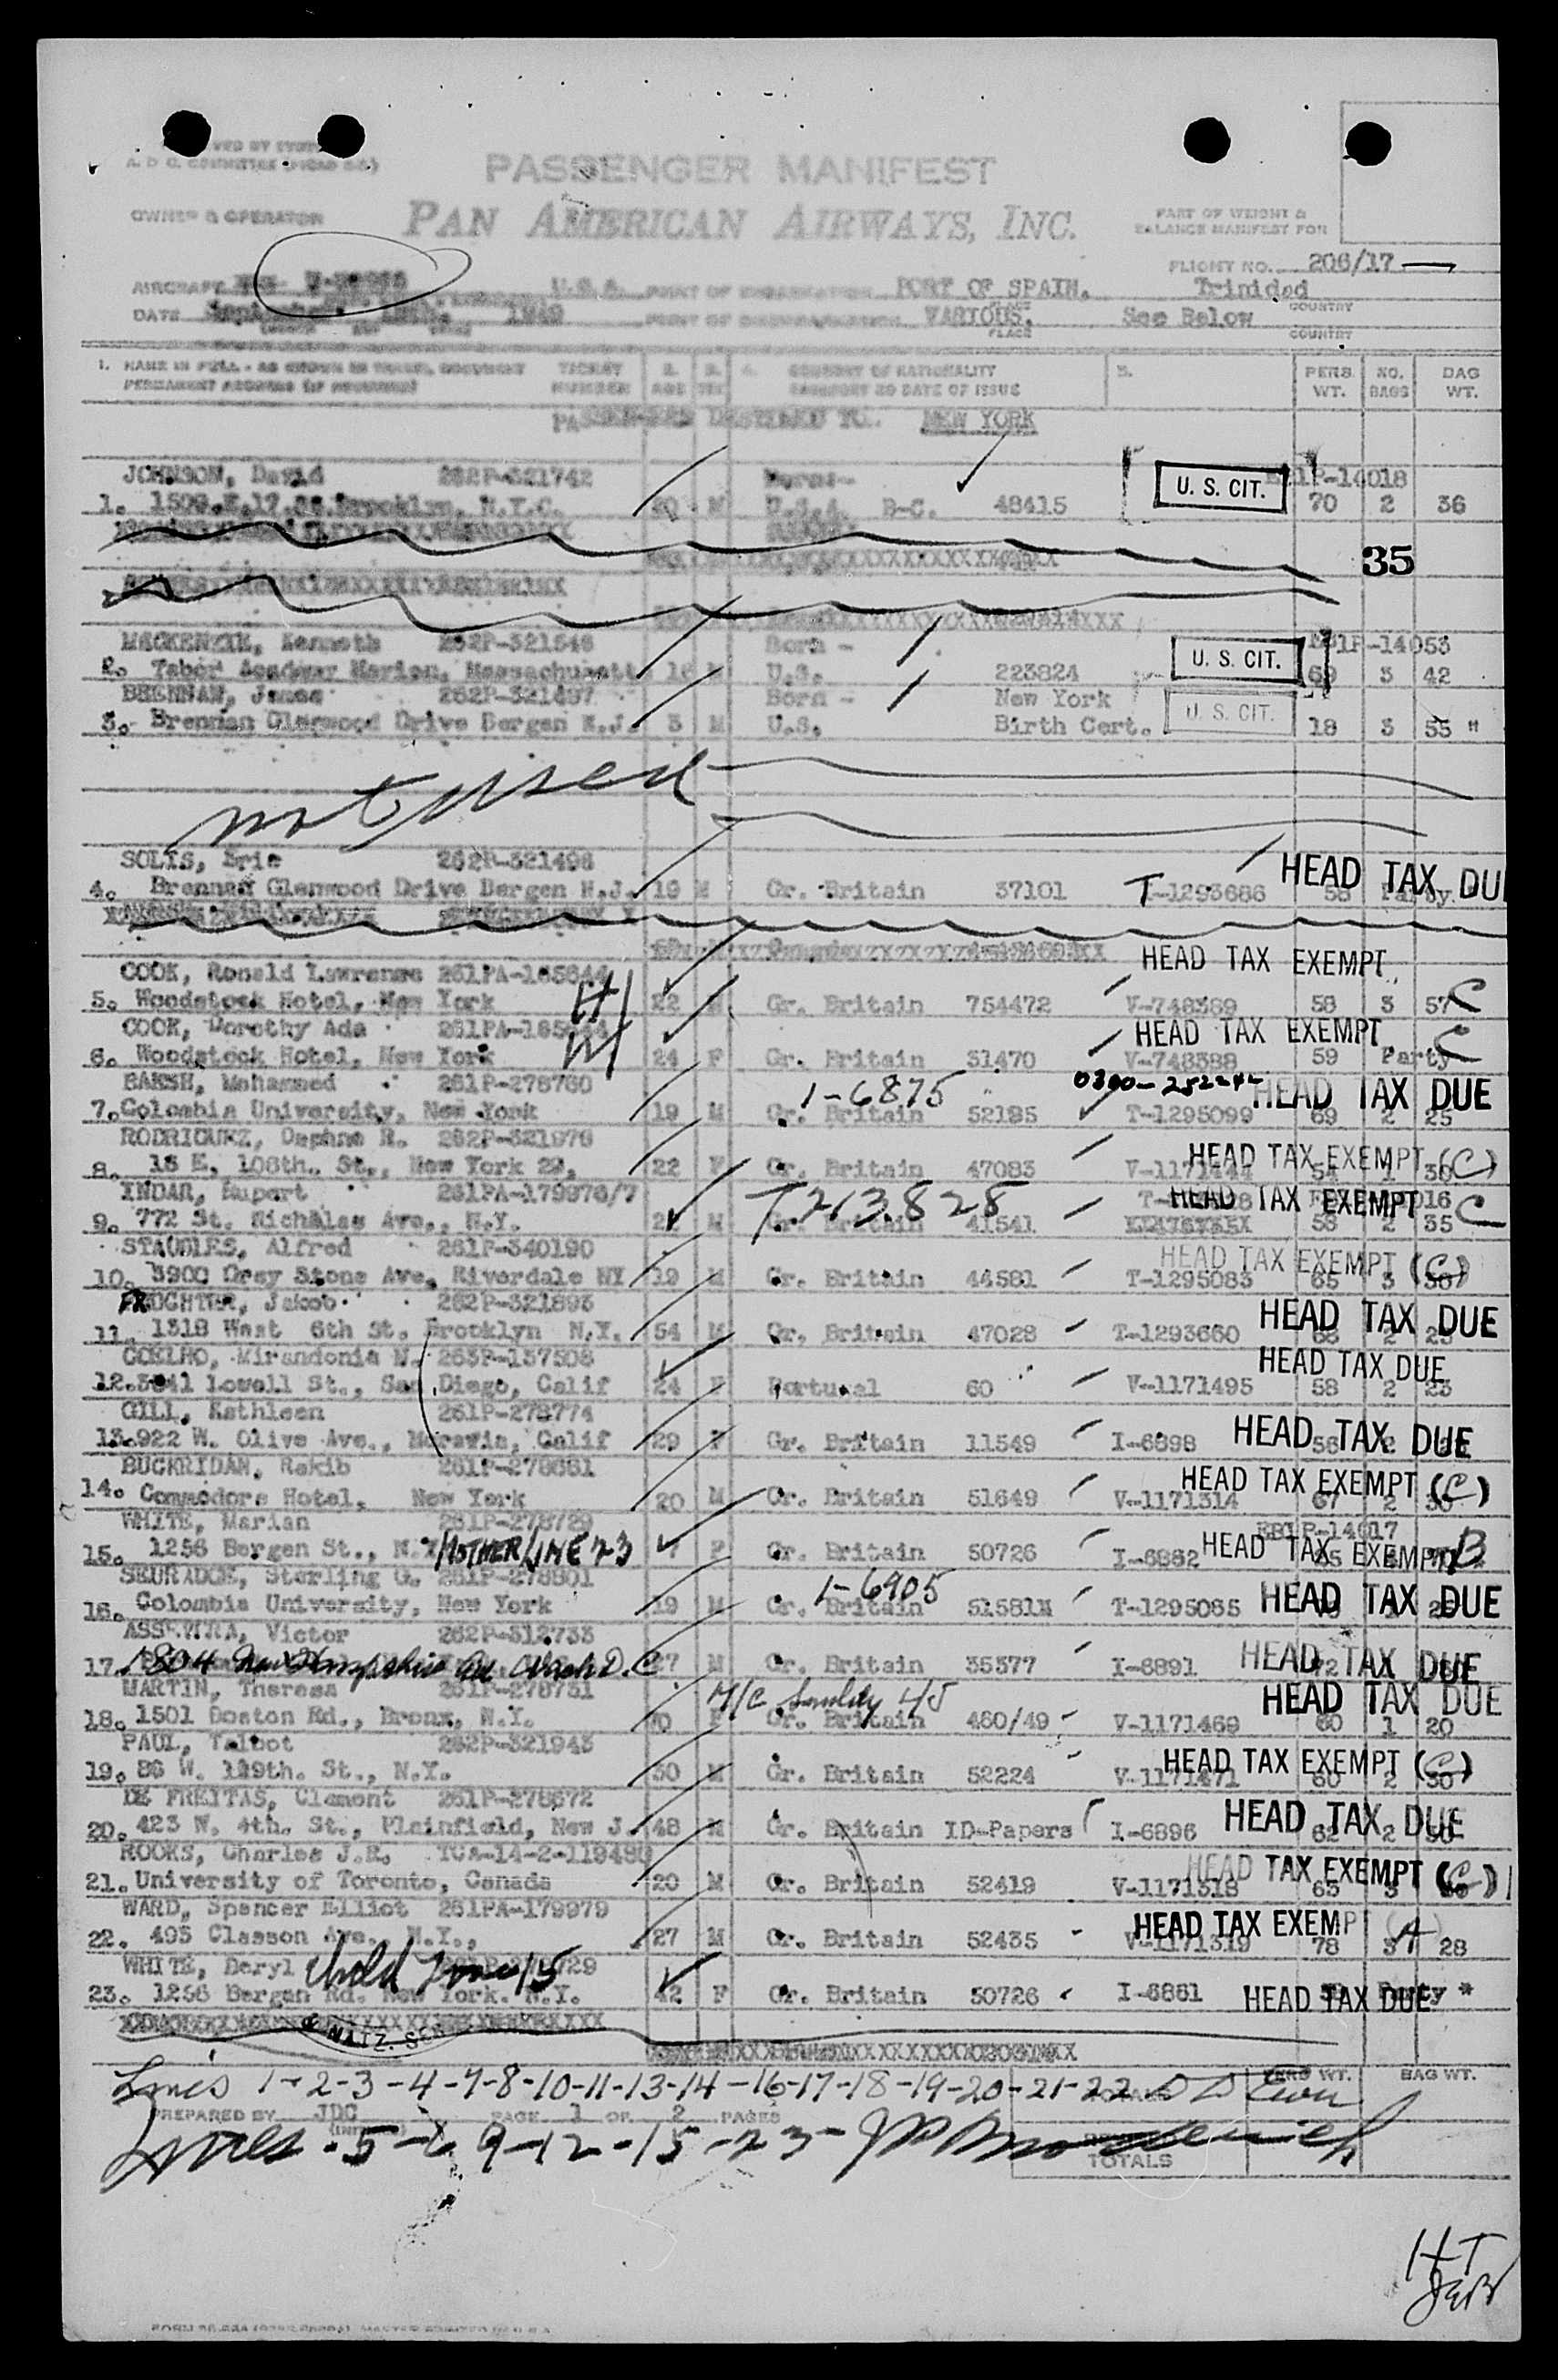 PASSENGER MANIFEST
OWNER & OPERATOR PAN AMERICAN AIRWAYS, INC. PART OF WEIGHT &
BALANCE MANIFEST FOR
FLIGHT NO. 206/17
AIRCRAFT U.S.A. POINT OF EMBARKATION PORT OF SPAIN. Trinidad
PLACE COUNTRY
DATE September 1949 POINT OF DISEMBARKATION VARIOUS. See Below
PLACE COUNTRY
1. NAME IN FULL - AS SHOWN IN TRAVEL DOCUMENT TICKET 2. 3. 4. COUNTRY OF NATIONALITY 5. PERS. NO. BAG
PERMANENT ADDRESS (IF REQUIRED) NUMBER AGE SEX PASSPORT NO DATE OF ISSUE WT. BAGS WT.
PASSENGERS DESTINED TO. NEW YORK
JOHNSON, David 262P-321742 Born- U. S. CIT. -14018
1. 1509.E.17.St.Brooklyn, N.Y.C. 20 M U.S.A. B-C. 48415 70 2 36
35
MACKENZIE, Kenneth 262P-321546 Born - U. S. CIT. -14053
2. Tabor Academy Marion, Massachusett. 16 M U.S. 223824 69 3 42
BRENNAN, James 262P-321497 Born - New York U. S. CIT.
3. Brennan Glenwood Drive Bergen N.J. 3 M U.S. Birth Cert. 18 3 55 "
not used
SOLIS, Eric 262P-321498 HEAD TAX DU
4. Brennan Glenwood Drive Bergen N.J. 19 M Gr. Britain 37101 T-1293686 58 Party
COOK, Ronald Lawrence 261PA-165644 HEAD TAX EXEMPT
5. Woodstock Hotel, New York H/ 22 M Gr. Britain 754472 V-748389 58 3 57 C
COOK, Dorothy Ada 261PA-165644 HEAD TAX EXEMPT C
6. Woodstock Hotel, New York W/ 24 F Gr. Britain 51470 V-748388 59 Party
BAKSH, Mohammed 261P-278760 1-6875 HEAD TAX DUE
7. Colombia University, New York 19 M Gr. Britain 52195 T-1295099 69 2 25
RODRIQUEZ, Daphne R. 262P-321976 HEAD TAX EXEMPT (C)
8. 15 E. 108th. St., New York 29, 22 F Gr. Britain 47083 V-1171444 54 1 30
INDAR, Rupert 261PA-179976/7 T213828 HEAD TAX EXEMPT C
9. 772 St. Nicholas Ave., N.Y. M Gr. Britain 41541 58 2 35
STAUBLES, Alfred 261P-340190 HEAD TAX EXEMPT (C)
10. 3900 Grey Stone Ave. Riverdale NY 19 M Gr. Britain 44581 T-1295083 65 3
FRUCHTER, Jakob 262P-321893 HEAD TAX DUE
11. 1318 West 6th St. Brooklyn N.Y. 54 M Gr. Britain 47028 T-1293660 68 2 25
COELHO, Mirandonia N. 263P-137508 HEAD TAX DUE
12. 3841 Lowell St., San Diego, Calif 24 F Portugal 60 V-1171495 58 2 23
GILL, Kathleen 261P-278774 HEAD TAX DUE
13. 922 W. Olive Ave., Moravia, Calif 29 F Gr. Britain 11549 I-6898 56 2
BUCKRIDAN, Rakib 261P-278681 HEAD TAX EXEMPT (C)
14. Commodore Hotel, New York 20 M Gr. Britain 51649 V-1171314 67 2 30
WHITE, Marian 261P-278729 -14017
15. 1256 Bergen St., N.Y. MOTHER/LINE 23 F Gr. Britain 50726 I-6862 HEAD TAX EXEMPT B
SEURADGE, Sterling G. 261P-278801 1-6905 HEAD TAX DUE
16. Colombia University, New York 19 M Gr. Britain 51581M T-1295085
ASSEVIRA, Victor 262P-312733 HEAD TAX DUE
17. 1804 New Hampshire Av Wash D.C 27 M Gr. Britain 35377 I-6891 72
MARTIN, Theresa 261P-278731 HEAD TAX DUE
18. 1501 Boston Rd., Bronx, N.Y. F Gr. Britain 460/49 V-1171469 60 1 20
PAUL, Talbot 262P-321943 HEAD TAX EXEMPT (C)
19. 86 W. 119th. St., N.Y. 30 M Gr. Britain 52224 V-1171471 60 2 30
DE FREITAS, Clement 261P-278672 HEAD TAX DUE
20. 423 W. 4th. St., Plainfield, New J. 48 M Gr. Britain ID-Papers I-6896 62 2 30
ROOKS, Charles J.R. TCA-14-2-119480 HEAD TAX EXEMPT (C)
21. University of Toronto, Canada 20 M Gr. Britain 52419 V-1171318 63 3
WARD, Spencer Elliot 261PA-179979 HEAD TAX EXEMPT A
22. 495 Classon Ave. N.Y., 27 M Gr. Britain 52435 V-1171319 78 3 28
WHITE, Beryl child Line 15
23. 1256 Bergen Rd. New York. N.Y. 42 F Gr. Britain 50726 I-6861 HEAD TAX DUE Party *
& NATZ. SER
Lines 1-2-3-4-7-8-10-11-13-14-16-17-18-19-20-21-22 PERS WT. BAG WT.
PREPARED BY JDC PAGE 1 OF 2 PAGES TOTALS
Lines 5-6 9-12-15-23-
TOTALS
HT